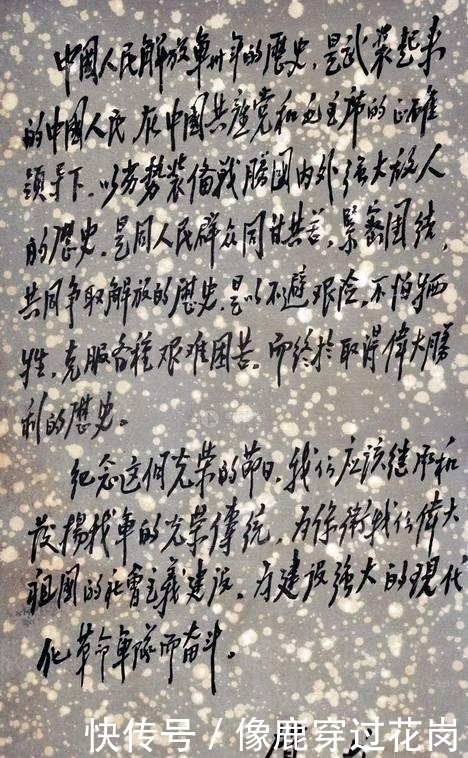 中國人民解放軍卅年的歷史，是武装起来
的中國人民在中國共産党和毛主席的正確
领导下，以劣势装备戰勝國内外强大敌人
的歷史，是同人民群众同甘共苦，緊密团结，
共同争取解放的歷史，是以不避艰险，不怕牺
牲，克服各種艰难困苦，而终於取得偉大勝
利的歷史。
纪念这個光荣的节日，我们应该继承和
发揚我軍的光荣傳统，为保衛我们偉大
祖國的社會主義建设，为建设强大的现代
化革命軍隊而奋斗。
快传号 / 像鹿穿过花岗